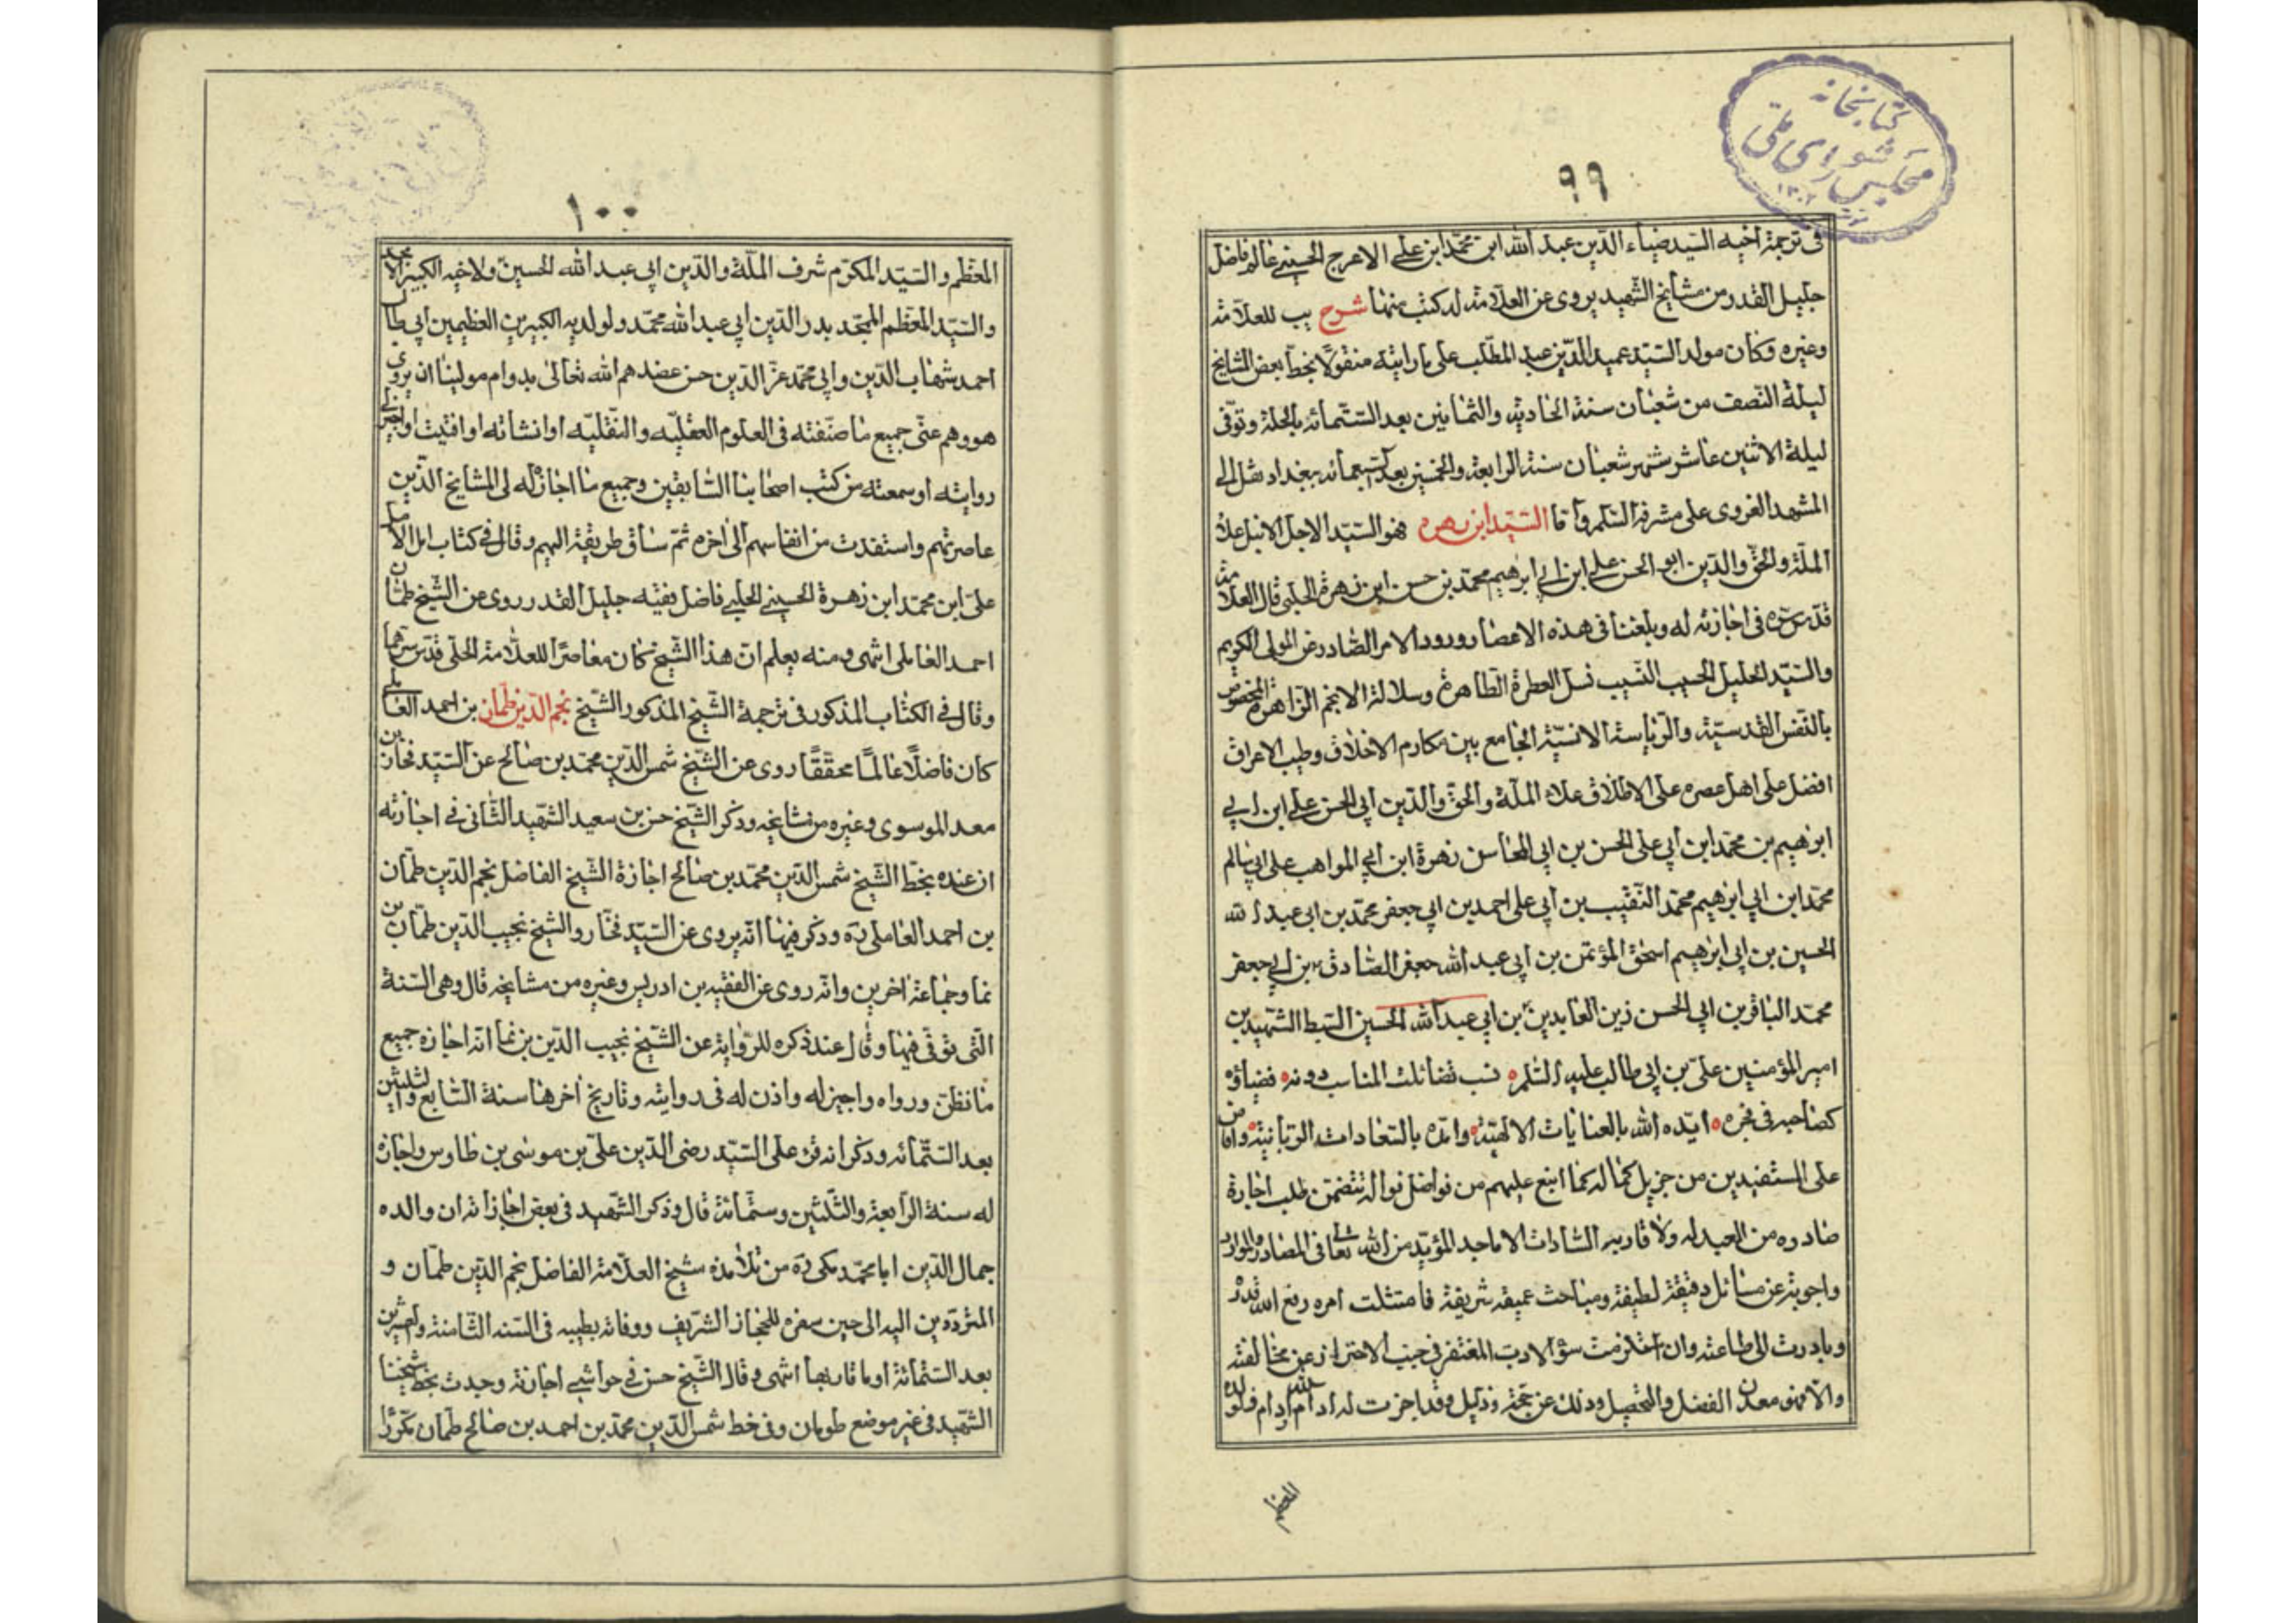 كتابخانه
مجلس شورای ملی
۱۳۰۲
٩٩
فى ترجمة اخيه السيد ضياء الدين عبد الله ابن محمد ابن على الاعرج الحسينى عالم فاضل
جليل القدر من مشايخ الشهيد يروى عن العلامة له كتب منها شرح يب للعلامة
وغيره وكان مولد السيد عميد الدين عبد المطلب على ما رايته منقولا بخط بعض المشايخ
ليلة النصف من شعبان سنة الحادية والثمانين بعد الستمائه بالحلة وتوفى
ليلة الاثنين عاشر شهر شعبان سنة الرابعة والخمسين بعد السبعمائه ببغداد نقل الى
المشهد الغروى على مشرفه السلم وآقا السيد ابن زهره فهو السيد الاجل الانبل علاء
الملة والحق والدين ابو الحسن على ابن ابى ابرهيم محمد بن حسن ابن زهرة الحلبى قال العلامة
قدس سره فى اجازته له وبلغنا فى هذه الاعصار ورود الامر الصادر عن المولى الكريم
والسيد الجليل الحسيب النسيب نسل العطرة الطاهرة وسلالة الانجم الزاهرة المخصوص
بالنفس القدسية والرياسة الانسية الجامع بين مكارم الاخلاق وطيب الاعراق
افضل على اهل عصره على الاطلاق علاء الملة والحق والدين ابى الحسن على ابن ابى
ابرهيم بن محمد ابن ابى على الحسن بن ابى المحاسن زهرة ابن ابى المواهب على ابى سالم
محمد ابن ابى ابرهيم محمد النقيب بن ابى على احمد بن ابى جعفر محمد بن ابى عبد الله
الحسين بن ابى ابرهيم اسحق المؤتمن بن ابى عبد الله جعفر الصادق بن ابى جعفر
محمد الباقر بن ابى الحسن زين العابدين بن ابى عبد الله الحسين السبط الشهيد بن
امير المؤمنين على بن ابى طالب عليه السلم نسب تضائلت المناسب دونه فضياؤه
كصاحبه فى فجره ايده الله بالعنايات الالهية وامده بالسعادات الربانية وافاض
على المستفيدين من جزيل كماله كما اسبغ عليهم من فواضل نواله تتضمن طلب اجازة
صادره من العبد له ولاقاربه السادات الاماجد المؤيد من الله تعالى فى المصادر والموارد
واجوبة عن مسائل دقيقة لطيفة ومباحث عميقه شريفة فامتثلت امره رفع الله قدره
وبادرت الى طاعته وان استلزمت سؤ الادب المغتفر فى جنب الاحتراز عن مخالفته
والا فهو معدن الفضل والتحصيل وذلك عن حجة ودليل وقد اجزت له ادام الله ايام ولولده
المعظم
١٠٠
المعظم والسيد المكرم شرف الملة والدين ابى عبد الله الحسين ولاخيه الكبير الامجد
والسيد المعظم الممجد بدر الدين ابى عبد الله محمد ولولديه الكبيرين العظيمين ابى طالب
احمد شهاب الدين وابى محمد عز الدين حسن عضدهم الله تعالى بدوام مولينا ان يروى
هو وهم عنى جميع ما صنفته فى العلوم العقليه والنقليه او انشاته او افتيت او اجيز لى
روايته او سمعته من كتب اصحابنا السابقين وجميع ما اجازه لى المشايخ الذين
عاصرتهم واستفدت من انفاسهم الى اخره ثم ساق طريقة اليهم وقال فى كتاب امل الامل
على ابن محمد ابن زهرة الحسينى الحلبى فاضل فقيه جليل القدر روى عن الشيخ طمان
احمد العاملى انتهى ومنه يعلم ان هذا الشيخ كان معاصرا للعلامة الحلى قدس سرهما
وقال فى الكتاب المذكور فى ترجمة الشيخ المذكور الشيخ نجم الدين طمان بن احمد العاملى
كان فاضلا عالما محققا روى عن الشيخ شمس الدين محمد بن صالح عن السيد فخار بن
معد الموسوى وغيره من مشايخه وذكر الشيخ حسن بن سعيد الشهيد الثانى فى اجازته
ان عنده بخط الشيخ شمس الدين محمد بن صالح اجازة الشيخ الفاضل نجم الدين طمان
بن احمد العاملى ره وذكر فيها انه يروى عن السيد فخار والشيخ نجيب الدين طمان بن
نما وجماعة اخرين وانه روى عن الفقيه بن ادريس وغيره من مشايخه قال وهى السنة
التى توفى فيها وقال عند ذكره للرواية عن الشيخ نجيب الدين بن نما انه اجازه جميع
ما نظق ورواه واجيز له واذن له فى روايته وتاريخ اخرها سنة السابع والثلثين
بعد الستمائه وذكر انه قرء على السيد رضى الدين على بن موسى بن طاوس واجازه
له سنة الرابعة والثلثين وستمائة قال وذكر الشهيد فى بعض اجازاته ان والده
جمال الدين ابا محمد مكى ره من تلامذه شيخ العلامة الفاضل نجم الدين طمان و
المترددين اليه الى حين سفره للحجاز الشريف ووفاته بطيبه فى السنه الثامنة والعشرين
بعد الستمائة او ما قاربها انتهى وقال الشيخ حسن فى حواشى اجازته وجدت بخط شيخنا
الشهيد فى غير موضع طومان وفى خط شمس الدين محمد بن احمد بن صالح طمان مكررا